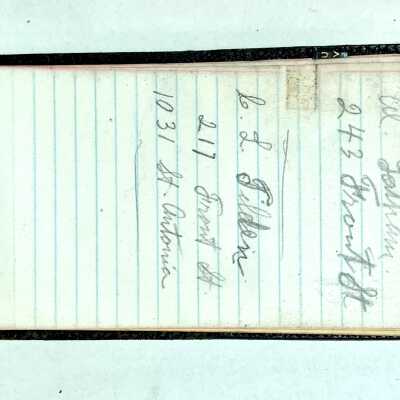 243 Front St
C. L. Tilden
217 Front St.
1031 St. Antonia